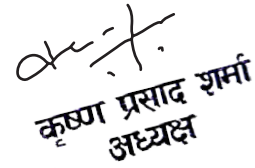 कृष्ण प्रसाद शर्मा
अध्यक्ष